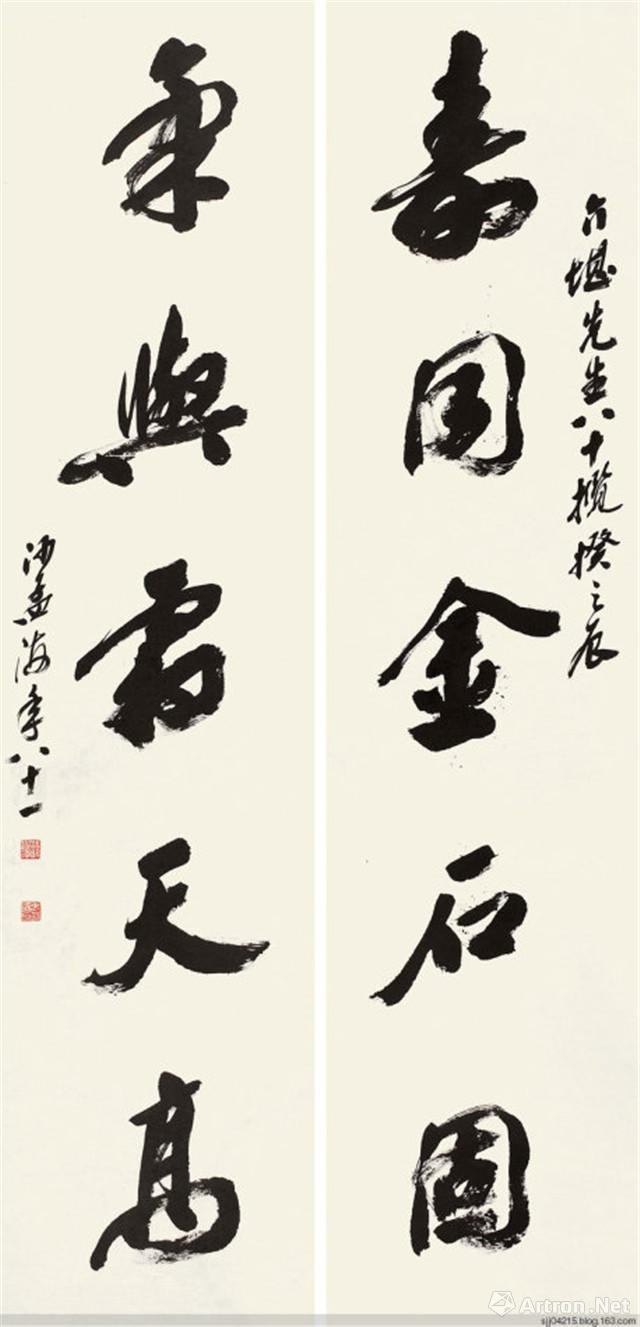 介堪先生八十攬揆之辰
壽同金石固
氣與霜天高
沙孟海年八十一
Artron.Net
sjj04215.blog.163.com